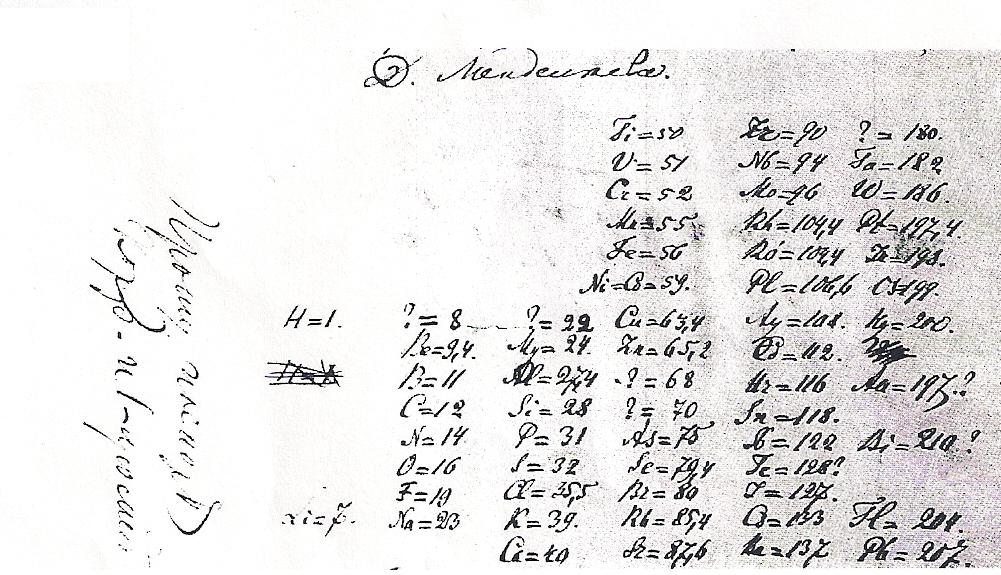 Д. Менделеев.
Ti=50 Zr=90 ?=180.
V=51 Nb=94 Ta=182
Cr=52 Mo=96 W=186.
Mn=55 Rh=104,4 Pt=197,4.
Fe=56 Ru=104,4 Ir=198.
Ni=Co=59. Pl=106,6 Os=199.
H=1. ?=8 ?=22 Cu=63,4 Ag=108. Hg=200.
Be=9,4. Mg=24. Zn=65,2 Cd=112.
B=11 Al=27,4 ?=68 Ur=116 Au=197?
C=12 Si=28 ?=70 Sn=118.
N=14 P=31 As=75 Sb=122 Bi=210?
O=16 S=32 Se=79,4 Te=128?
F=19 Cl=35,5 Br=80 J=127.
Li=7. Na=23 K=39. Rb=85,4 Cs=133 Tl=204.
Ca=40 Sr=87,6 Ba=137 Pb=207.